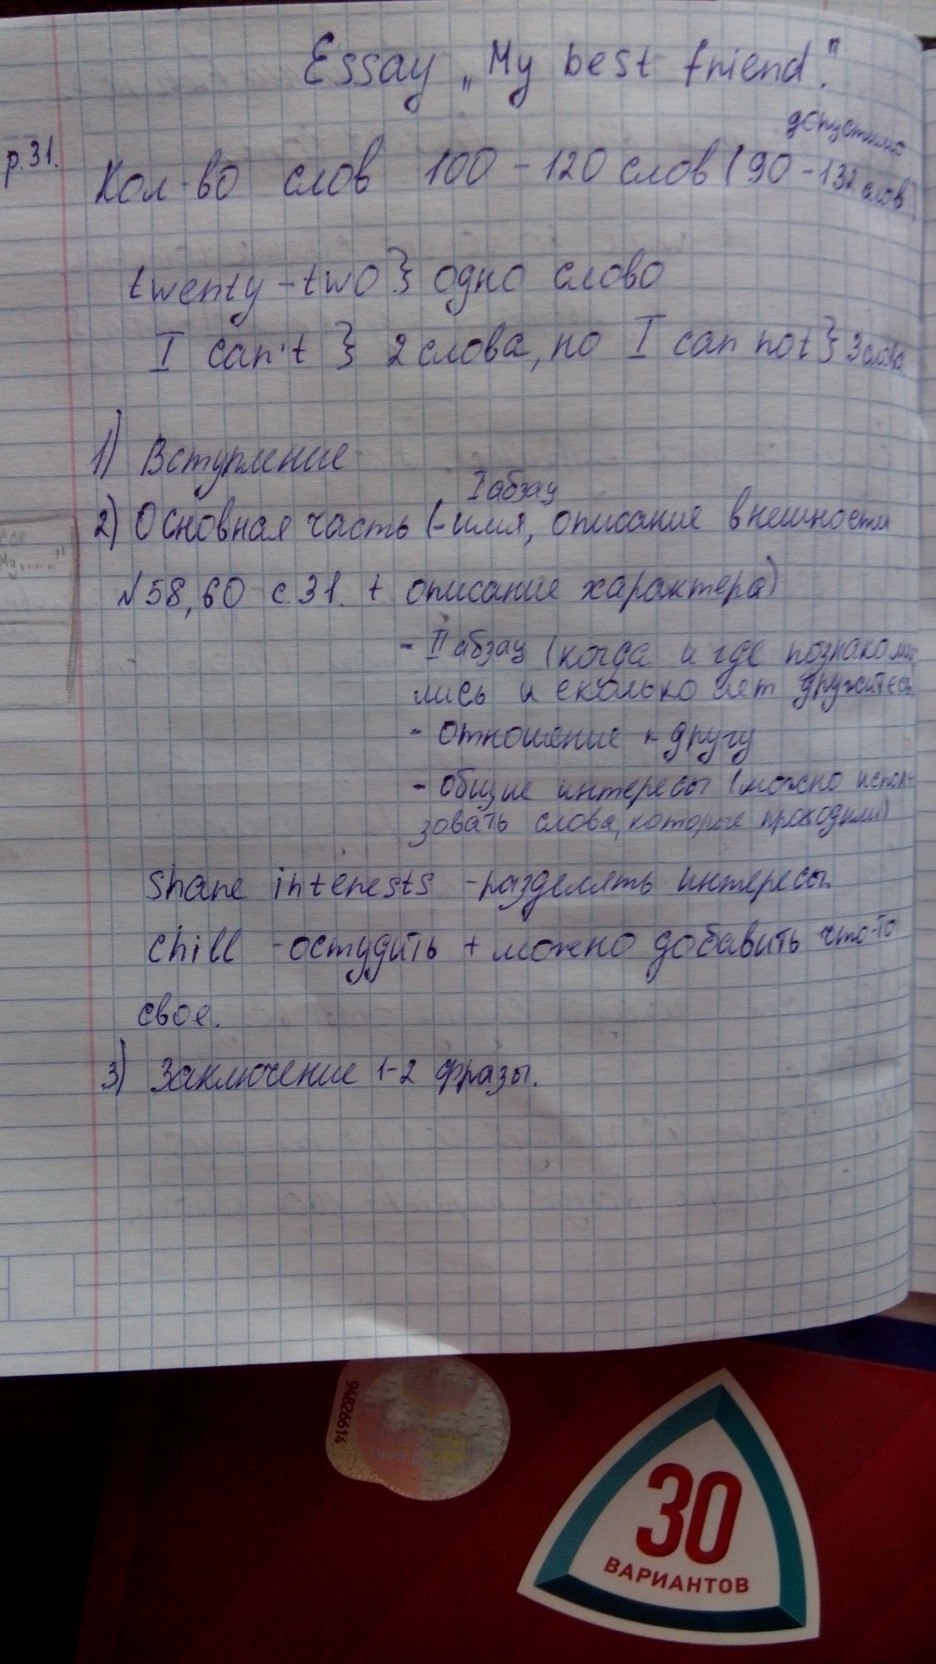 Essay „My best friend."
допустимо
р.31. Кол-во слов 100-120 слов (90-132 слов)
twenty-two} одно слово
I can't } 2 слова, но I can not} 3 слова
1) Вступление
I абзац
2) Основная часть (-имя, описание внешности
№58,60 с.31. + описание характера)
- II абзац (когда и где познакоми
лись и сколько лет дружитесь
- отношение к другу
- общие интересы (можно исполь-
зовать слова, которые проходили)
Share interests -разделять интересы.
Chill -остудить + можно добавить что-то
свое.
3) Заключение 1-2 фразы.
94826614
30
ВАРИАНТОВ